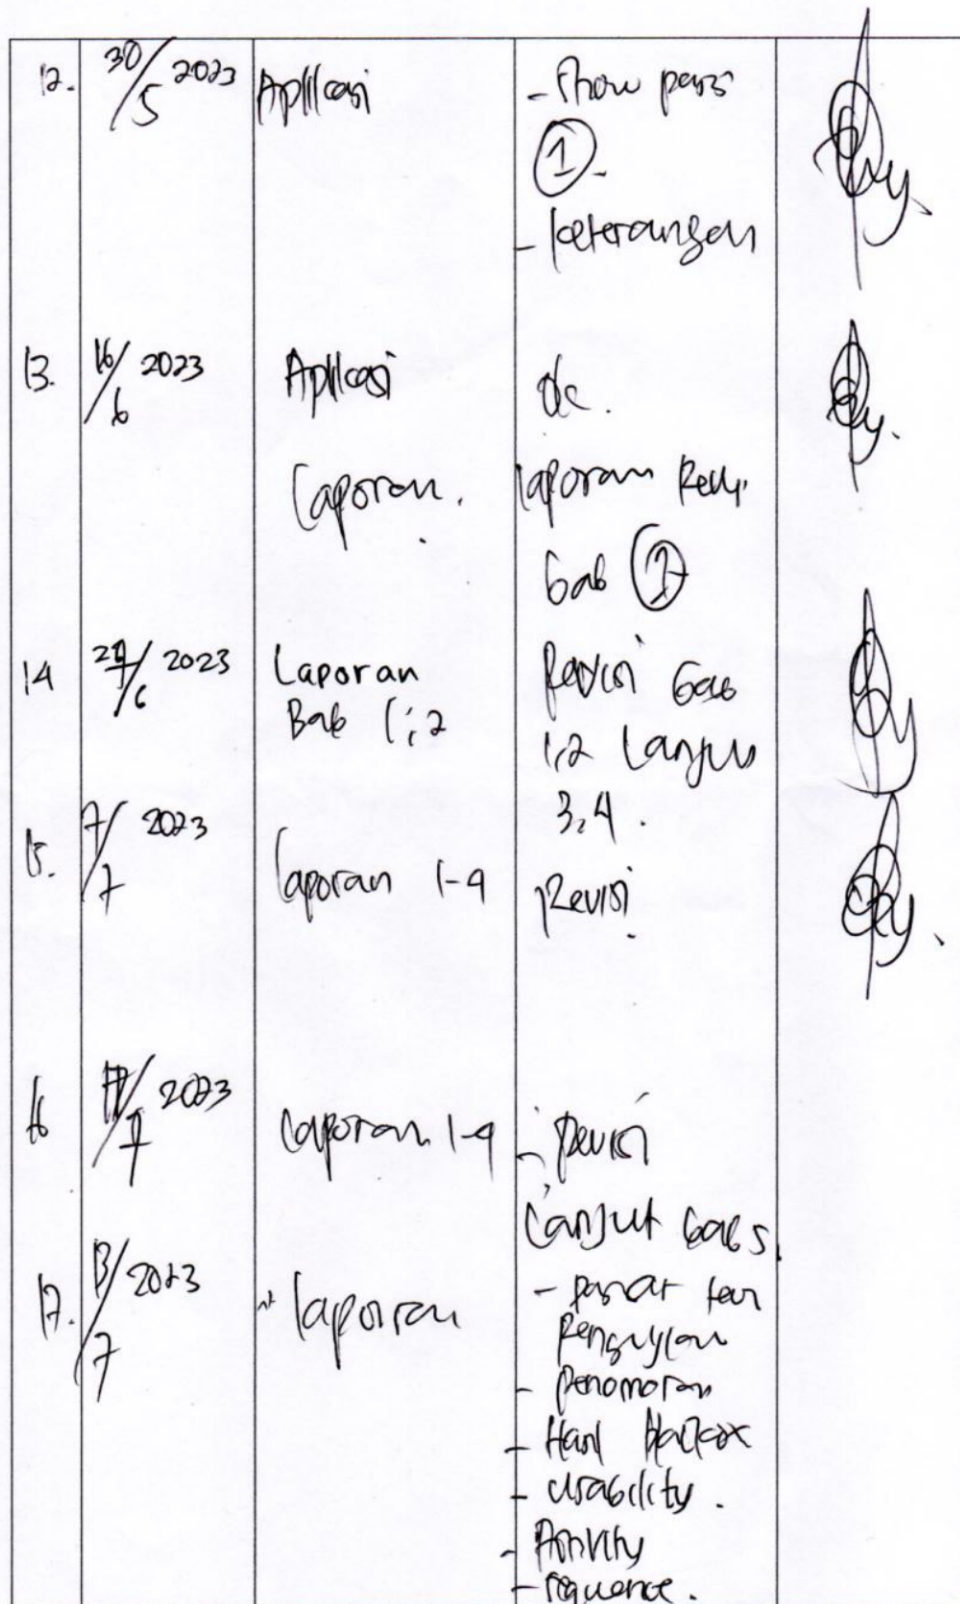 12. 30/5 2023 Aplikasi - Show pass
①.
- keterangan
13. 16/6 2023 Aplikasi Ok.
Laporan. laporan
bab ①
14 27/6 2023 Laporan Revisi bab
Bab 1,2 1,2 Lanjut
3,4.
15. 7/7 2023 Laporan 1-4 Revisi
16 2023 Laporan 1-4 - Revisi
Lanjut bab 5.
17. 13/7 2023 laporan -
Pengujian
- Penomoran
- Hasil Blackbox
- usability.
- Activity
- sequence.